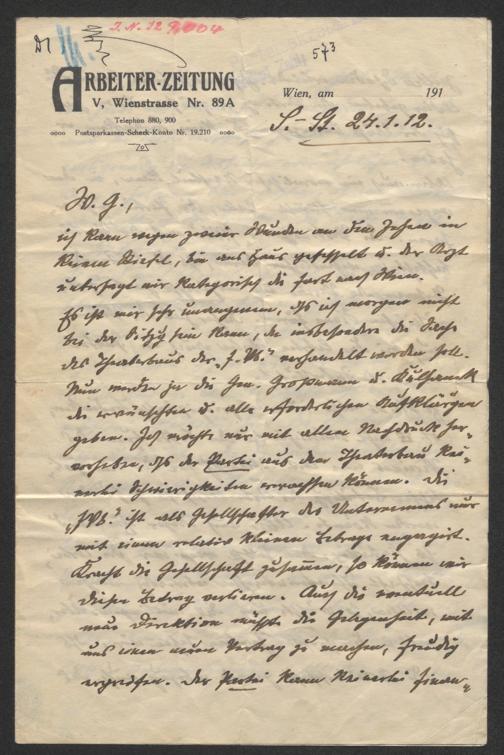 I. N. 129.004
573
ARBEITER-ZEITUNG
V, Wienstrasse Nr. 89A
Telephon 880, 900
Postsparkassen-Scheck-Konto Nr. 19.210
Wien, am 191
S.-St. 24.1.12.
W. G.,
ich kann wegen zweier Wunden an den Zehen in
keinen Stiefel, bin ans Haus gefesselt u. der Arzt
untersagt mir kategorisch die Fahrt nach Wien.
Es ist mir sehr unangenehm, dß ich morgen nicht
bei der Sitzg sein kann, da insbesondere die Sache
des Theaterbaus der „F. Vb." verhandelt werden soll.
Nun werden ja die Gen. Großmann u.
die erwünschten u. alle erforderlichen Aufklärungen
geben. Ich möchte nur mit allem Nachdruck her-
vorheben, dß der Partei aus dem Theaterbau kei-
nerlei Schwierigkeiten erwachsen können. Die
„FVb." ist als Gesellschafter des Unternemens nur
mit einem relativ kleinen Betrage engagirt.
Kracht die Gesellschaft zusammen, so können wir
diesen Betrag verlieren. Auch die eventuell
neue Direktion müßte die Gelegenheit, mit
uns einen neuen Vertrag zu machen, freudig
ergreifen. Der Partei kann keinerlei finan-